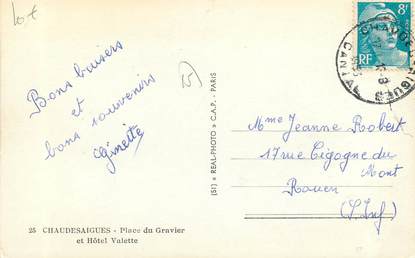 lot
8F
RF
CHAUDES-AIGUES
CANTAL
Bons baisers
et
bons souvenirs
Ginette
15
Mme Jeanne Robert
17 rue Cigogne du
Mont
Rouen
(S. Inf)
(51) « REAL-PHOTO » C.A.P. - PARIS
25 CHAUDESAIGUES - Place du Gravier
et Hôtel Valette